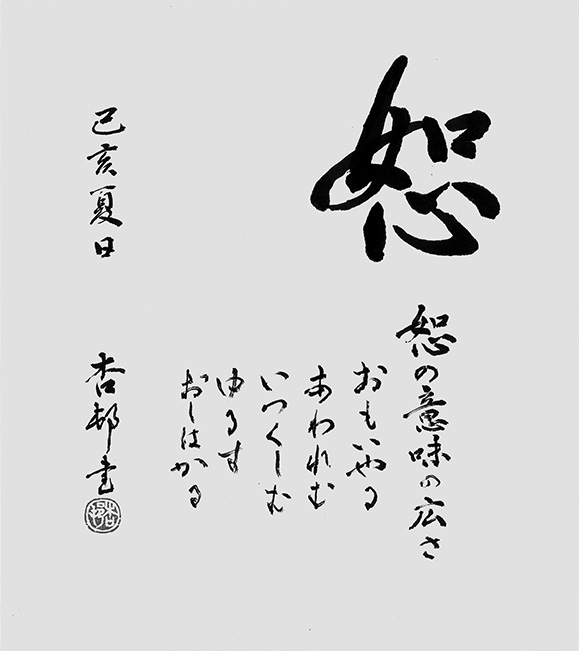 恕
恕の意味の広さ
おもいやる
あわれむ
いつくしむ
ゆるす
おしはかる
己亥夏日
杏邨書